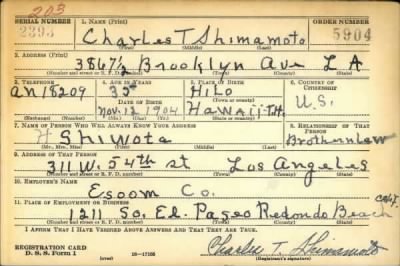 203
SERIAL NUMBER 1. NAME (Print) ORDER NUMBER
2393 Charles T Shimamoto 5904
(First) (Middle) (Last)
2. ADDRESS (Print)
3867½ Brooklyn Ave L A
(Number and street or R. F. D. number) (Town) (County) (State)
3. TELEPHONE 4. AGE IN YEARS 5. PLACE OF BIRTH 6. COUNTRY OF CITIZENSHIP
AN 18209 35 Hilo U.S.
DATE OF BIRTH (Town or county)
Nov. 13 1904 Hawaii T.H.
(Exchange) (Number) (Mo.) (Day) (Yr.) (State or country)
7. NAME OF PERSON WHO WILL ALWAYS KNOW YOUR ADDRESS 8. RELATIONSHIP OF THAT PERSON
H Shiwota Brotherinlaw
(Mr., Mrs., Miss) (First) (Middle) (Last)
9. ADDRESS OF THAT PERSON
311 W. 54th st Los Angeles
(Number and street or R. F. D. number) (Town) (County) (State)
10. EMPLOYER'S NAME
Esoom Co.
11. PLACE OF EMPLOYMENT OR BUSINESS
1211 So. El. Paseo Redondo Beach Calif.
(Number and street or R. F. D. number) (Town) (County) (State)
I AFFIRM THAT I HAVE VERIFIED ABOVE ANSWERS AND THAT THEY ARE TRUE.
REGISTRATION CARD
D. S. S. Form 1 (over) 16—17105 Charles T. Shimamoto
(Registrant's signature)